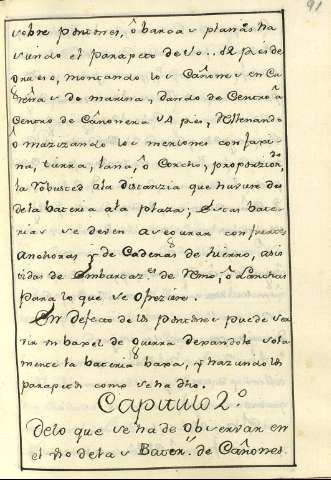 91
sobre pontones, ô barcas planas ha
siendo el parapeto de 10.. 12 pies de
grueso, montando los Cañones en Cu
reñas de marina, dando de Centro â
Centro de Cañonera 18 pies, Rellenando
ô mazizando los merlones con faxi
na, tierra, lana, ô Corcho, proporzion.do
la robusted a la distanzia que hubiere des
de la bateria a la plaza; Estas bate
rias se deven asegurar con fuertes
Anchoras y de Cadenas de hierro, asis
tidas de Embarcaz.es de Remo, ô Lanchas
para lo que se ofreziere.
En defecto de los pontones puede ser
vir un baxel de Guerra dexandole sola
mente la bateria baxa, y haziendo los
parapetos como se ha dho.
Capitulo 2.º
De lo que se ha de Observar en
el uso de las Bater.s de Cañones